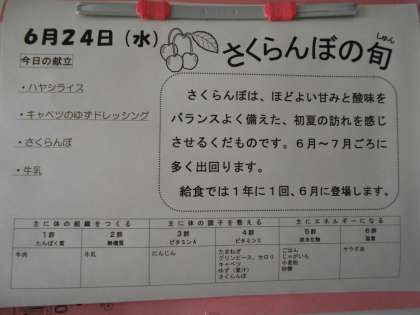 6月24日（水）
さくらんぼの旬
しゅん
今日の献立
・ハヤシライス
・キャベツのゆずドレッシング
・さくらんぼ
・牛乳
さくらんぼは、ほどよい甘みと酸味を
バランスよく備えた、初夏の訪れを感じ
させるくだものです。６月～７月ごろに
多く出回ります。
給食では１年に１回、６月に登場します。
主に体の組織をつくる 主に体の調子を整える 主にエネルギーになる
１群 ２群 ３群 ４群 ５群 ６群
たんぱく質 無機質 ビタミンＡ ビタミンＣ 炭水化物 脂質
牛肉 牛乳 にんじん たまねぎ ごはん サラダ油
グリンピース、セロリ じゃがいも
キャベツ 小麦粉
ゆず（果汁） 砂糖
さくらんぼ